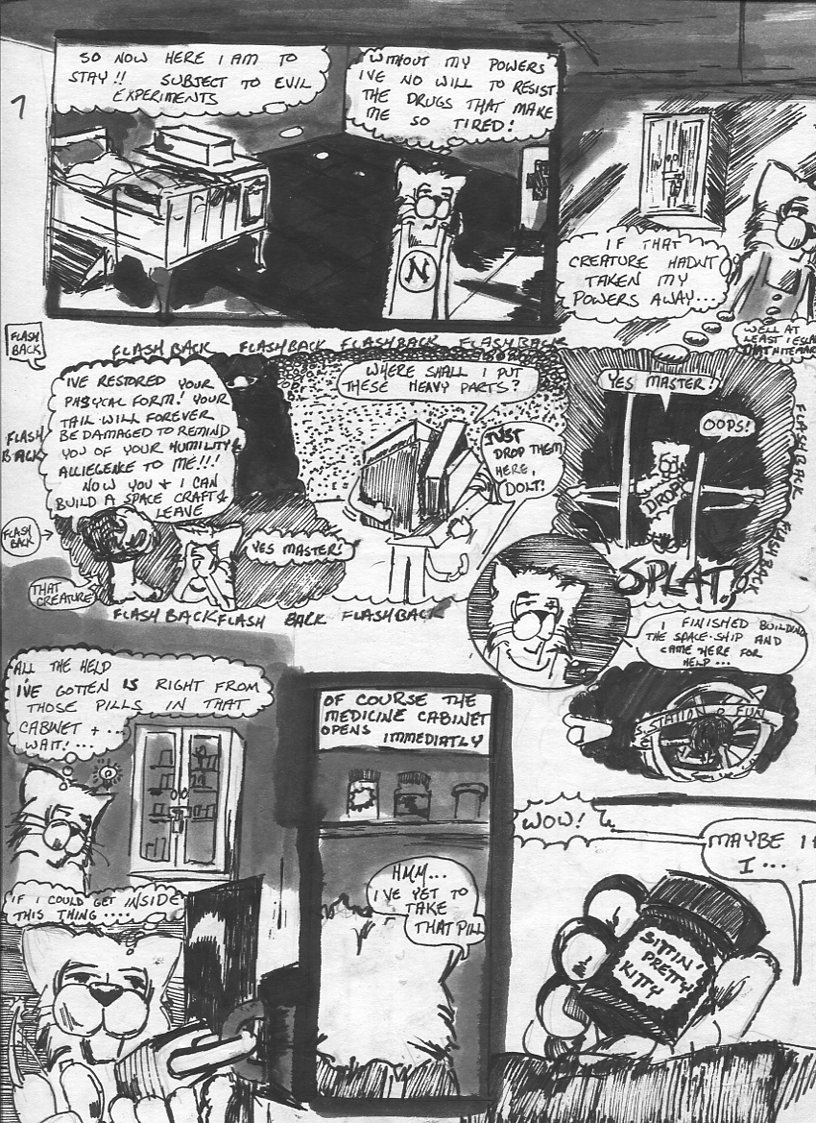 SO NOW HERE I AM TO
STAY!! SUBJECT TO EVIL
EXPERIMENTS
WITHOUT MY POWERS
I'VE NO WILL TO RESIST
THE DRUGS THAT MAKE
ME SO TIRED!
N
IF THAT
CREATURE HADN'T
TAKEN MY
POWERS AWAY...
WELL AT
LEAST I
FLASH
BACK
FLASH BACK FLASHBACK FLASHBACK FLASHBACK
I'VE RESTORED YOUR
PHSYCAL FORM! YOUR
TAIL WILL FOREVER
BE DAMAGED TO REMIND
YOU OF YOUR HUMILITY &
ALLIEGENCE TO ME!!!
NOW YOU + I CAN
BUILD A SPACE CRAFT &
LEAVE
FLASH
BACK
FLASH
BACK
THAT
CREATURE
YES MASTER!
WHERE SHALL I PUT
THESE HEAVY PARTS?
JUST
DROP THEM
HERE,
DOLT!
YES MASTER!
OOPS!
DROP
SPLAT
FLASHBACK
FLASHBACK
FLASHBACK FLASH BACK FLASHBACK
I FINISHED BUILDING
THE SPACE-SHIP AND
CAME HERE FOR
HELP...
S. STATION O FUN
ALL THE HELP
I'VE GOTTEN IS RIGHT FROM
THOSE PILLS IN THAT
CABNET + ...
WAIT!...
IF I COULD GET INSIDE
THIS THING....
OF COURSE THE
MEDICINE CABINET
OPENS IMMEDIATLY
HMM...
I'VE YET TO
TAKE
THAT PILL
WOW!
MAYBE IF
I...
SITTIN'
PRETTY
KITTY